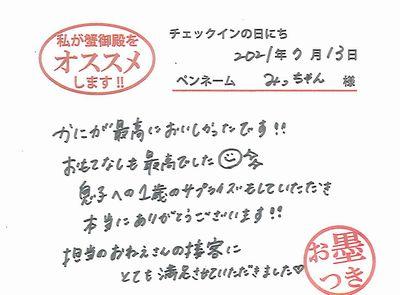 私が蟹御殿を
オススメ
します!!
チェックインの日にち
2021年7月13日
ペンネーム みっちゃん 様
かにが最高においしかったです!!
おもてなしも最高でした
息子への1歳のサプライズもしていただき
本当にありがとうございます!!
担当のおねえさんの接客に
とても満足させていただきました♡
お墨
つき